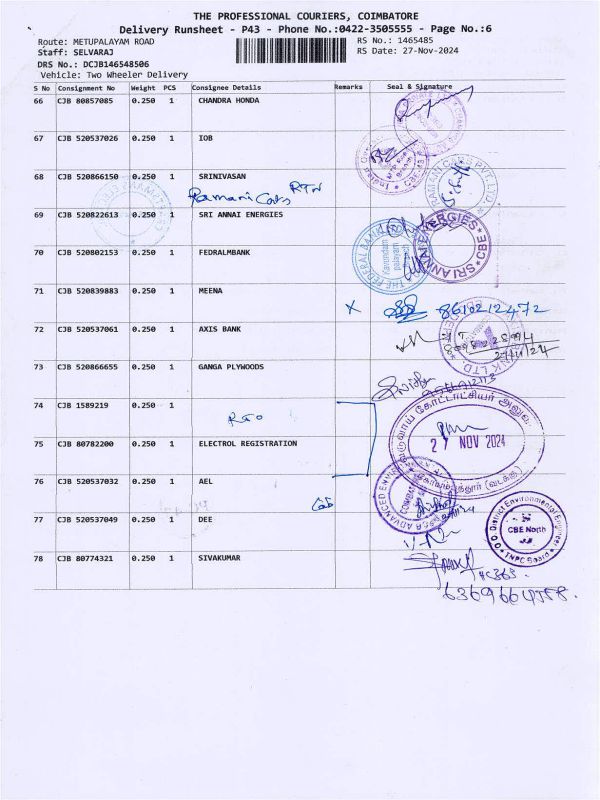 THE PROFESSIONAL COURIERS, COIMBATORE
Delivery Runsheet - P43 - Phone No.:0422-3505555 - Page No.:6
Route: METUPALAYAM ROAD
RS No.: 1465485
Staff: SELVARAJ
RS Date: 27-Nov-2024
DRS No.: DCJB146548506
Vehicle: Two Wheeler Delivery
S No Consignment No Weight PCS Consignee Details Remarks Seal & Signature
66 CJB 80857085 0.250 1 CHANDRA HONDA
67 CJB 520537026 0.250 1 IOB
68 CJB 520866150 0.250 1 SRINIVASAN
Ramani Cars RTN
RAMANI CARS PVT. LTD.
69 CJB 520822613 0.250 1 SRI ANNAI ENERGIES
SRI ANNAI ENERGIES CBE
70 CJB 520802153 0.250 1 FEDRALMBANK
THE FEDERAL BANK LTD
71 CJB 520839883 0.250 1 MEENA
X 8610212472
72 CJB 520537061 0.250 1 AXIS BANK
27/11/24
73 CJB 520866655 0.250 1 GANGA PLYWOODS
74 CJB 1589219 0.250 1
RTO
75 CJB 80782200 0.250 1 ELECTROL REGISTRATION
வருவாய் கோட்டாட்சியர் அலுவ
27 NOV 2024
கோயம்புத்தூர் (வடக்கு)
76 CJB 520537032 0.250 1 AEL
77 CJB 520537049 0.250 1 DEE
District Environmental Engineer
CBE North
TNPC Board
78 CJB 80774321 0.250 1 SIVAKUMAR